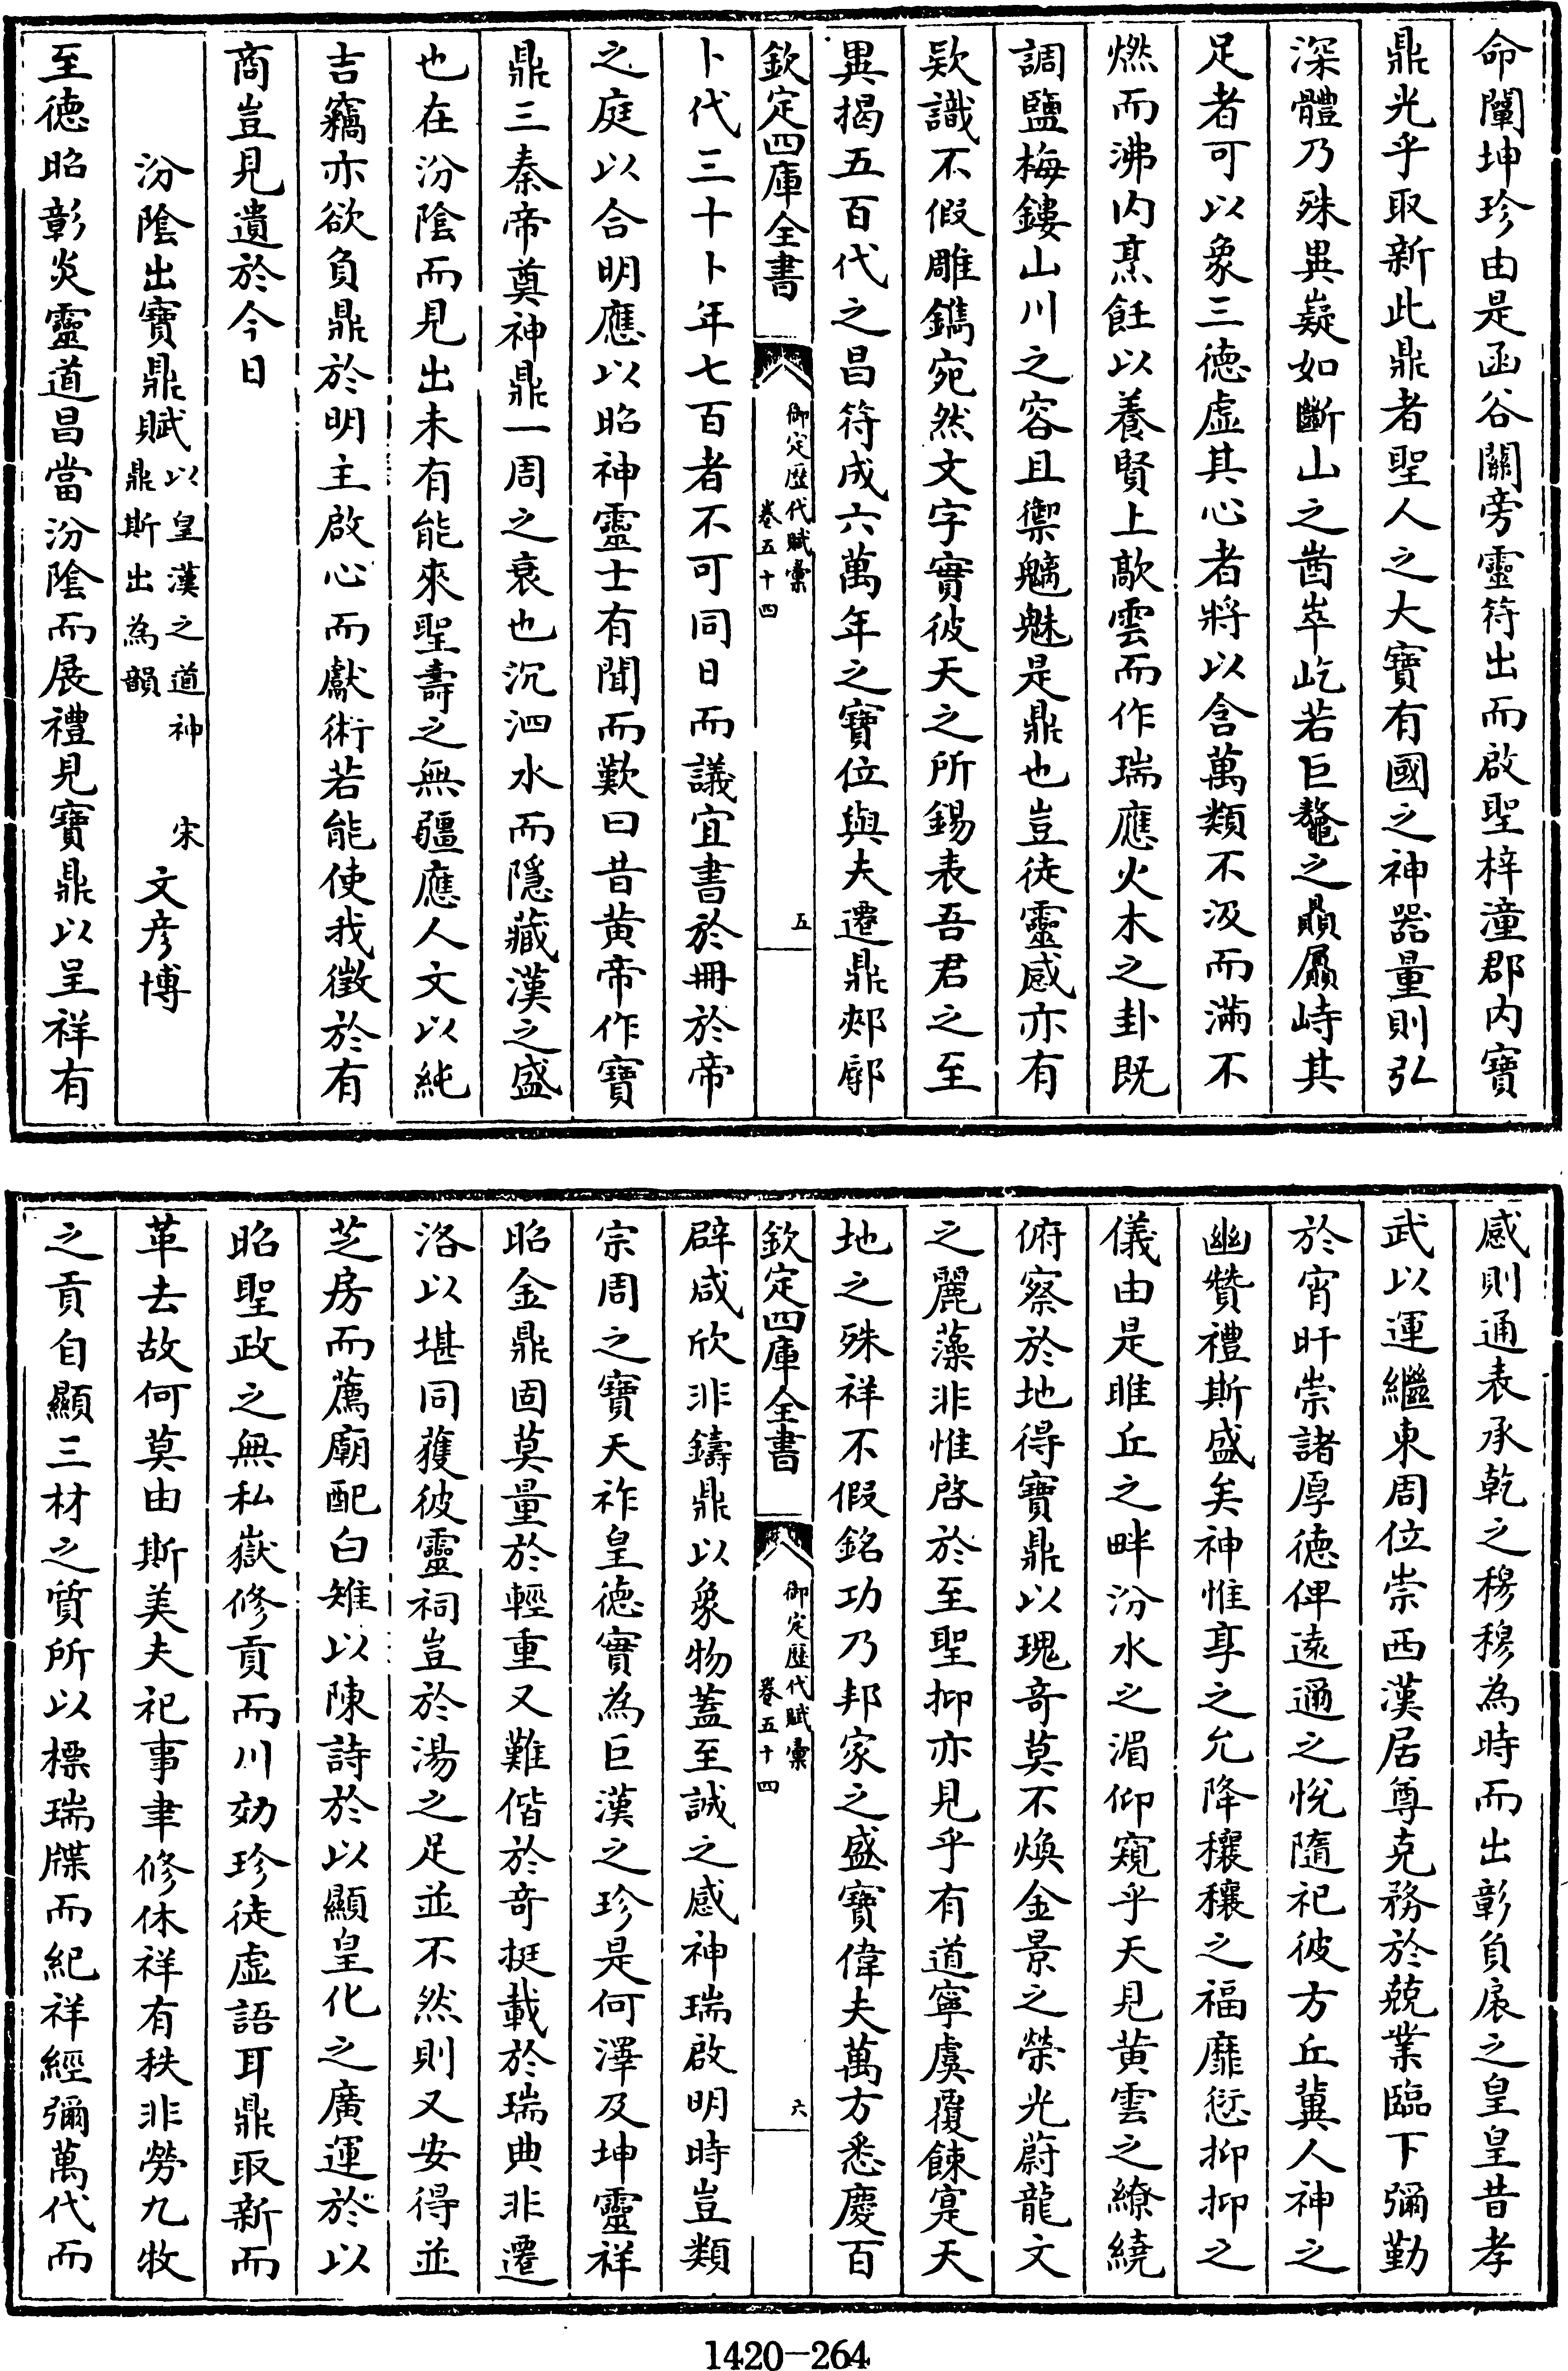 命闡坤珍由是函谷關旁靈符出而啟聖梓潼郡内寶
鼎光乎取新此鼎者聖人之大寶有國之神器量則弘
深體乃殊異嶷如斷山之崷崒屹若巨鼇之贔屭峙其
足者可以象三德虚其心者將以含萬類不汲而滿不
燃而沸内烹飪以養賢上歊雲而作瑞應火木之卦既
調鹽梅鏤山川之容且禦魑魅是鼎也豈徒靈感亦有
欵識不假雕鐫宛然文字實彼天之所錫表吾君之至
異揭五百代之昌符成六萬年之寶位與夫遷鼎郟鄏
欽定四庫全書
御定歷代賦彙
卷五十四
五
卜代三十卜年七百者不可同日而議宜書於冊於帝
之庭以合明應以昭神靈士有聞而歎曰昔黄帝作寶
鼎三秦帝奠神鼎一周之衰也沉泗水而隱藏漢之盛
也在汾陰而見出未有能來聖壽之無疆應人文以純
吉竊亦欲負鼎於明主啟心而獻術若能使我徵於有
商豈見遺於今日
汾陰出寶鼎賦 以皇漢之道神鼎斯出為韻 宋 文彦博
至德昭彰炎靈道昌當汾陰而展禮見寶鼎以呈祥有
感則通表承乾之穆穆為時而出彰負扆之皇皇昔孝
武以運繼東周位崇西漢居尊克務於兢業臨下彌勤
於宵旰崇諸厚德俾遠邇之悅隨祀彼方丘冀人神之
幽贊禮斯盛矣神惟享之允降穰穰之福靡愆抑抑之
儀由是睢丘之畔汾水之湄仰窺乎天見黄雲之繚繞
俯察於地得寶鼎以瑰奇莫不煥金景之榮光蔚龍文
之麗藻非惟啓於至聖抑亦見乎有道寧虞覆餗寔天
地之殊祥不假銘功乃邦家之盛寶偉夫萬方悉慶百
欽定四庫全書
御定歷代賦彙
卷五十四
六
辟咸欣非鑄鼎以象物蓋至誠之感神瑞啟明時豈類
宗周之寶天祚皇德實為巨漢之珍是何澤及坤靈祥
昭金鼎固莫量於輕重又難偕於奇挺載於瑞典非遷
洛以堪同獲彼靈祠豈於湯之足並不然則又安得並
芝房而薦廟配白雉以陳詩於以顯皇化之廣運於以
昭聖政之無私嶽修貢而川効珍徒虚語耳鼎取新而
革去故何莫由斯美夫祀事聿修休祥有秩非勞九牧
之貢自顯三材之質所以標瑞牒而紀祥經彌萬代而
1420-264